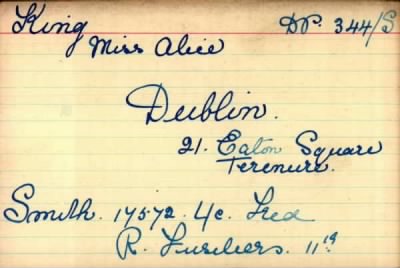 King DP. 344/S
Miss Alice
Dublin.
21. Eaton Square
Terenure.
Smith. 17572. L/c. Fred
R. Fusiliers. 11th